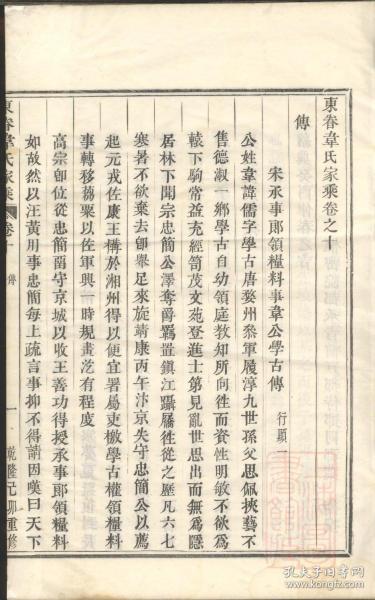 東眷韋氏家乘卷之十
傳
宋承事郎領糧料事韋公學古傳
行顯
公姓韋諱儒字學古唐婺州叅軍履淳九世孫父思佩挾藝不
售德淑一鄉學古自幼領庭教知所向徃而資性明敏不欲為
轅下駒常益充經笥茂文苑登進士第見亂世思出而無為隱
居林下聞宗忠簡公澤奪爵羈置鎮江躡屩徃從之歷凡六七
寒暑不欲棄去卽舉足來旋靖康丙午汴京失守忠簡公以薦
起元戎佐康王構於湘州得以便宜署屬吏檄學古權領糧料
事轉移芻粟以佐軍興一時規畫泛有程度
高宗卽位從忠簡畱守京城以收王善功得授承事郎領糧料
如故然以汪黃用事忠簡每上疏言事抑不得請因嘆曰天下
東眷韋氏家乘
卷十
傳
一
乾隆己卯重修
孔夫子旧书网